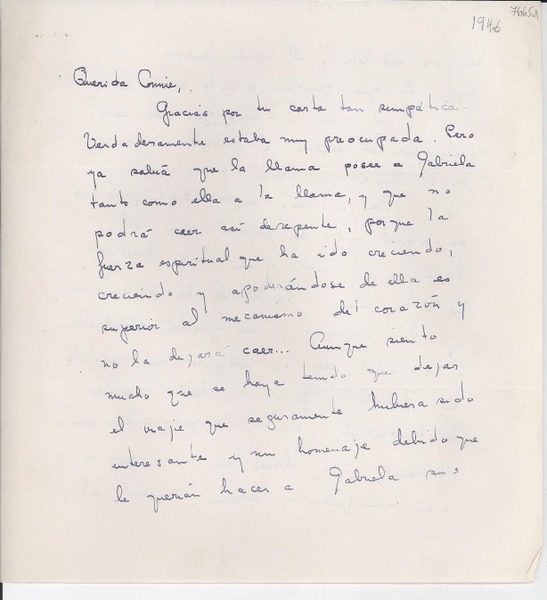 76651
1946
Querida Connie,
Gracias por tu carta tan simpática.
Verdaderamente estaba muy preocupada. Pero
ya sabía que la llama posee a Gabriela
tanto como ella a la llama, y que no
podrá caer así derepente, porque la
fuerza espiritual que ha ido creciendo,
creciendo y apoderándose de ella es
superior al mecanismo del corazón y
no la dejará caer... Aunque siento
mucho que se haya tenido que dejar
el viaje que seguramente hubiera sido
interesante y un homenaje debido que
le querían hacer a Gabriela sus